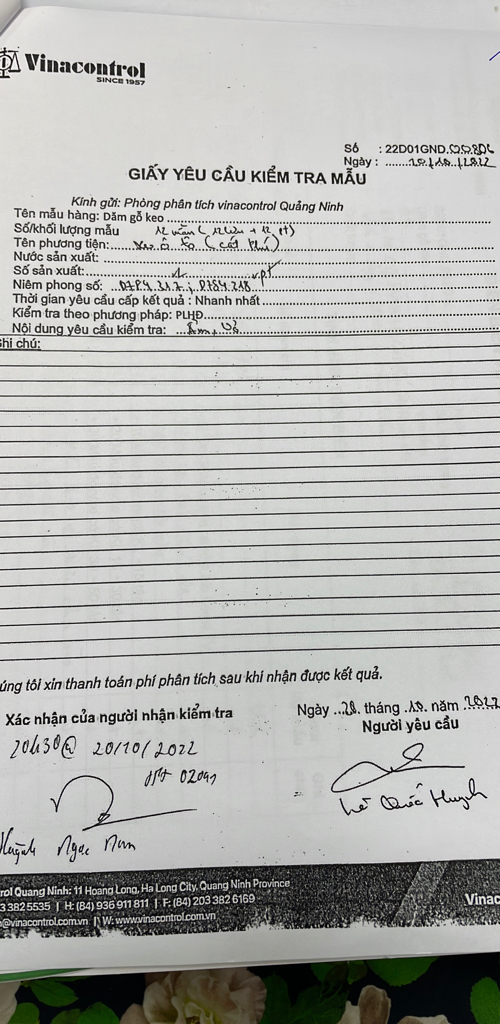 Vinacontrol
SINCE 1957
Số : 22D01GND.00806
Ngày : ......20/10/2022
GIẤY YÊU CẦU KIỂM TRA MẪU
Kính gửi: Phòng phân tích vinacontrol Quảng Ninh
Tên mẫu hàng: Dăm gỗ keo
Số/khối lượng mẫu 12 mẫu ( 12 lưu + 12 pt)
Tên phương tiện:
Nước sản xuất:
Số sản xuất:
Niêm phong số:
Thời gian yêu cầu cấp kết quả : Nhanh nhất
Kiểm tra theo phương pháp: PLHĐ
Nội dung yêu cầu kiểm tra: Ẩm, Vỏ
Ghi chú:
úng tôi xin thanh toán phí phân tích sau khi nhận được kết quả.
Ngày ..20. tháng .10. năm .2022
Xác nhận của người nhận kiểm tra
Người yêu cầu
20h30 @ 20/10/2022
Lê Quốc Huỳnh
Huỳnh Ngọc
rol Quang Ninh: 11 Hoang Long, Ha Long City, Quang Ninh Province
3 3825535 | H: (84) 936 911 811 | F: (84) 203 382 6169
@vinacontrol.com.vn | W: www.vinacontrol.com.vn
Vinac